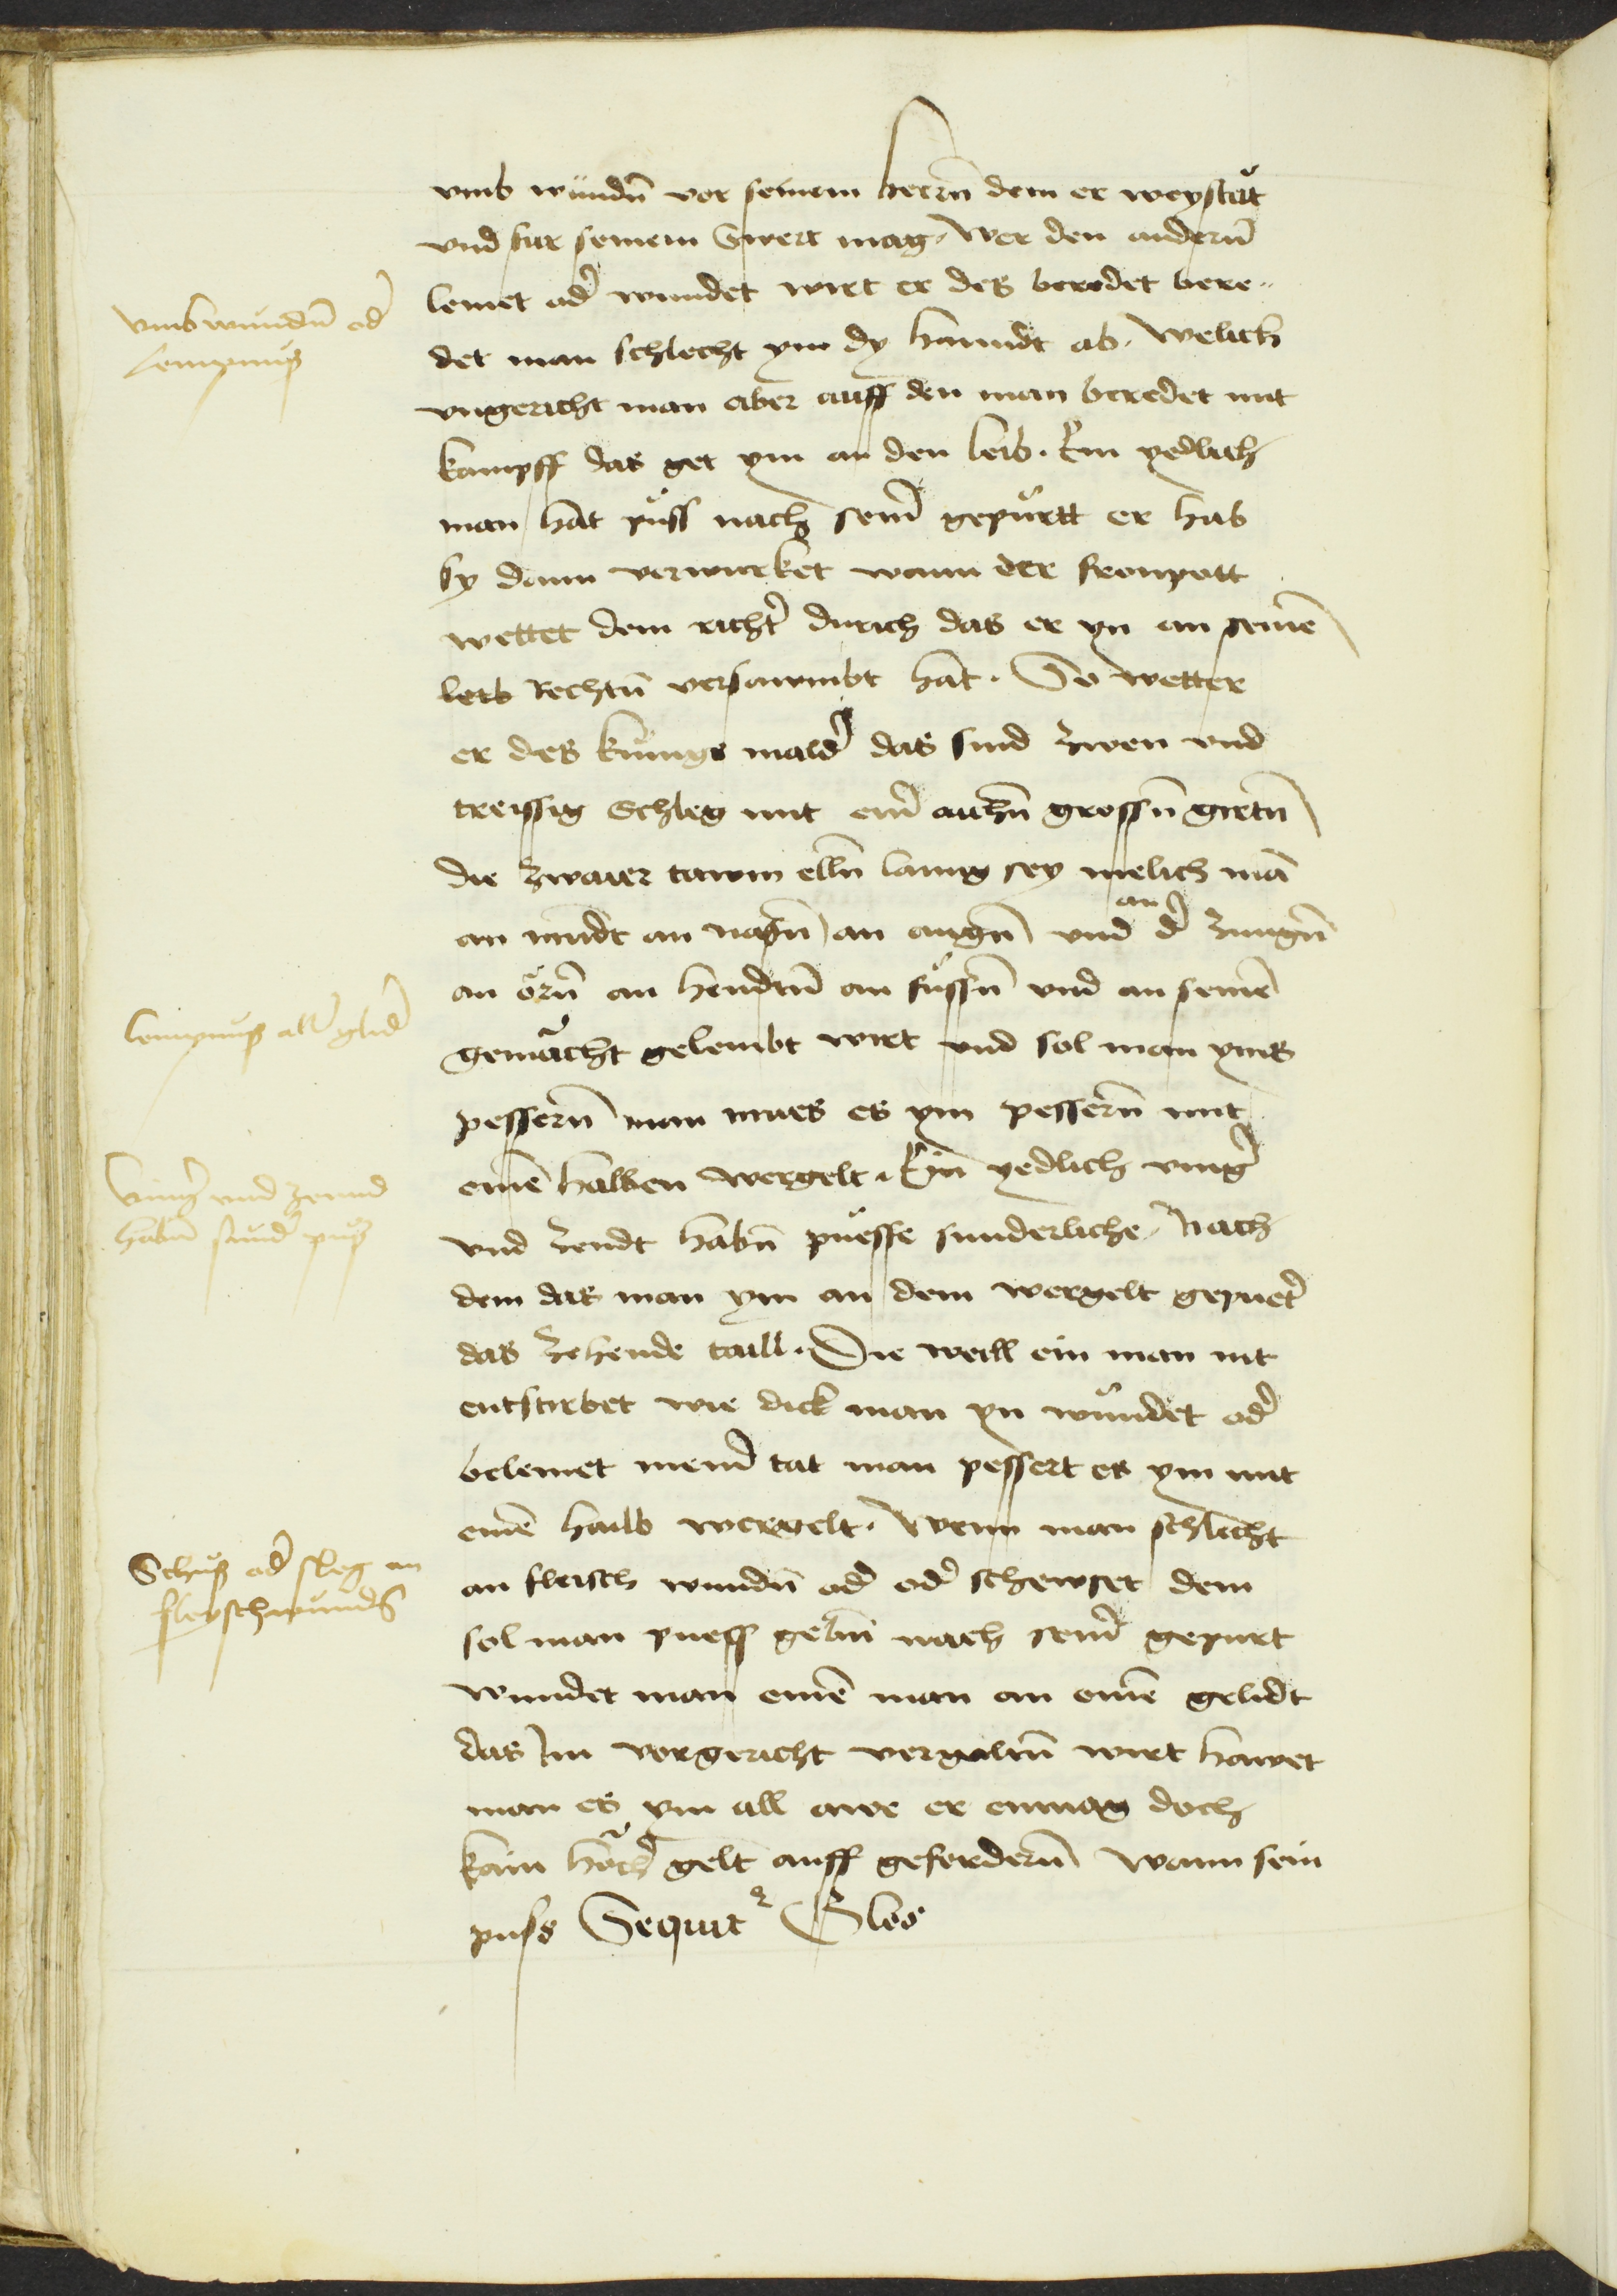 vmb wundn̄ vor seinem herrn̄ dem er weystat
vnd fur seinem Swert mag. Wer den andern̄
lemet od̄ wundet wirt er des beredet bere„
det man schlecht ym dy hanndt ab. Welich
vngericht man aber auff den man beredet mit
kampff das get ym an den leib. Ein yedlich
man hat puͦss nach sein̄ gepuͦrtt er hab
sy dann verwurket wann der fronpott
wettet dem richt̄ durich das er yn an seinē
leib Rechtn̄ versawmbt hat. So wetter
er des kunigs mald̄ das sind zwen vnd
treissig Schleg mit ein̄ aichn̄ grossn̄ girtn̄
die zwaier tawm elln̄ lanng sey welich mā
an mudt an nasn̄ an augn̄ vnd an d̄ zungn̄
an oͤrn̄ an hendtn̄ an fuͤssn̄ vnd an seinē
gemaͤcht gelembt wirt vnd sol man yms
pessern̄ man mues es ym pessern̄ mit
einē halben wergelt. Ein yedlich vinḡ
vnd zendt habn̄ puesse sunderliche. Nach
dem das man ym an dem wergelt gepuet̄
das zehende taill. Die weill ein man nit
entstirbet wie dick man yn wuͦndet od̄
belemet mein̄ tat man pessert es ym mit
einē halb wergelt. Wenn man schlecht
an fleisch wundn̄ od̄ od̄ schewset dem
sol man puess gebn̄ nach sein̄ gepurt
wundet man einē man an einē gelidt
das Im vorgericht vergaltn̄ wirt hawet
man es ym all awe er enmag doch
kain hoͤch̄ gelt auff gefordern̄ wann sein
puss Sequit᷑ Glos
vmb wundn̄ od̄
Lempnuß
lempnuß all̄ glid̄
Vinḡ vnd zennd
habn̄ sund̄ puß
Schuß od̄ sleg an
fleyschwunds